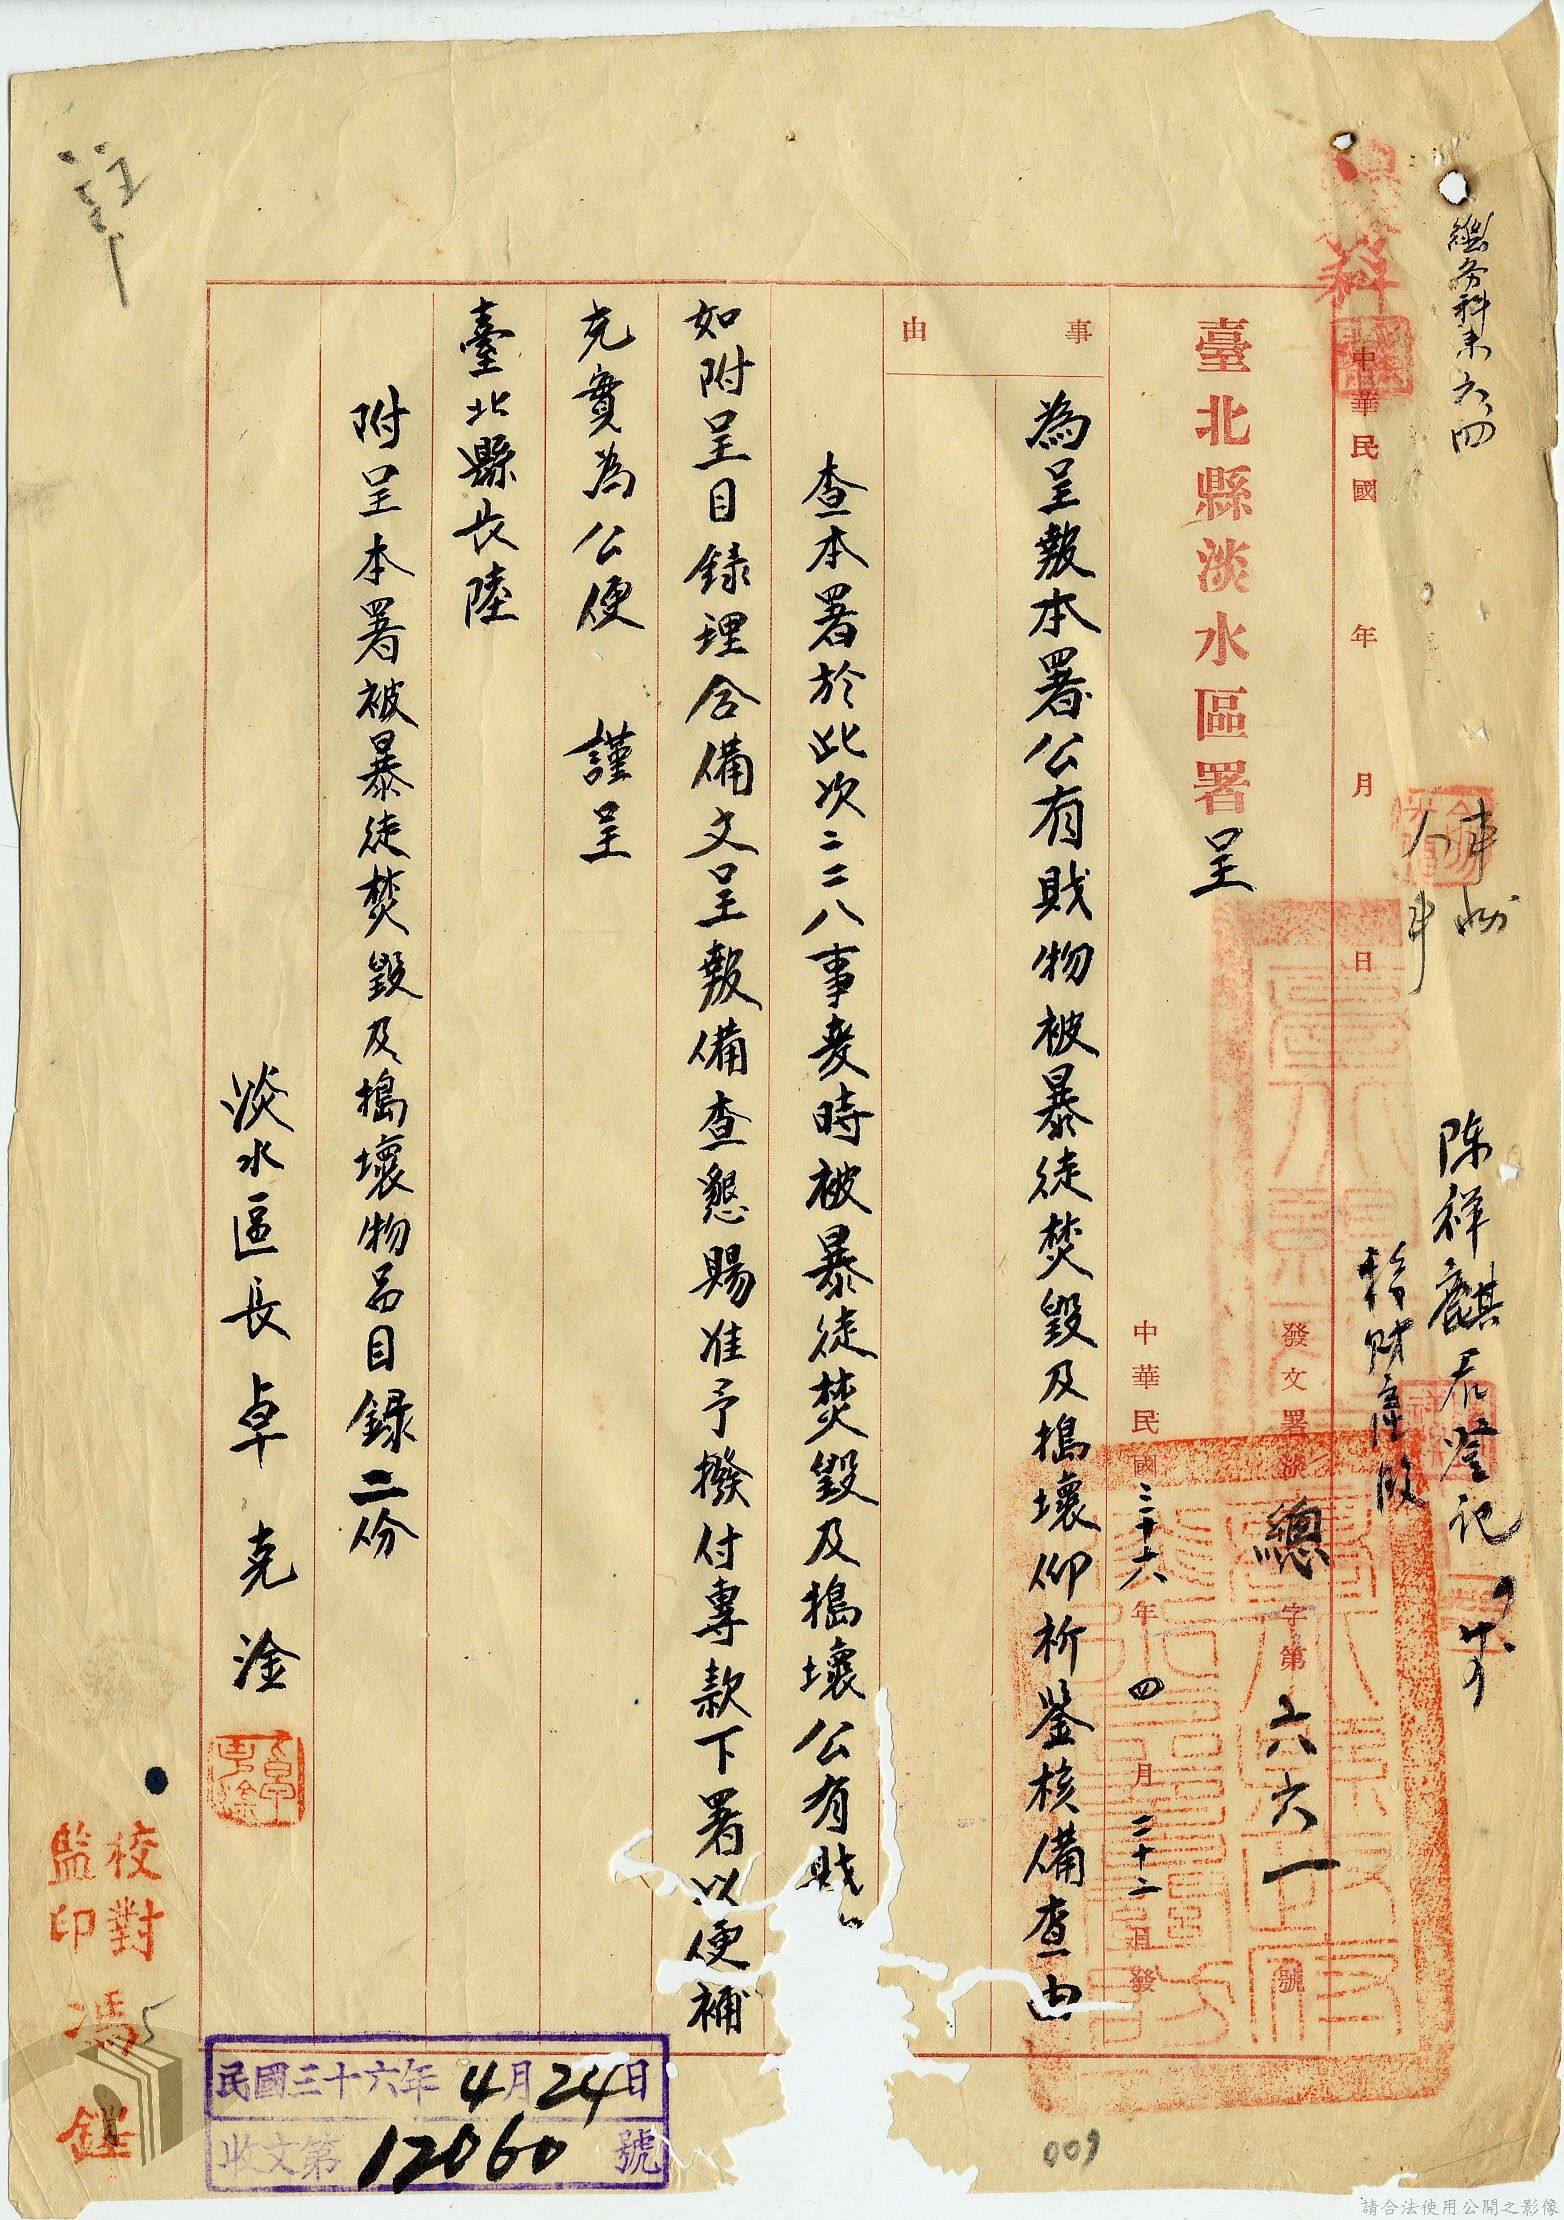 總務科未六四
陈祥麒君登記
移財產股
中華民國　年　月　日
臺北縣淡水區署呈
發文署淡總字第六六一號
中華民國三十六年四月二十二日發
事由
為呈報本署公有財物被暴徒焚毀及搗壞仰祈鑒核備查由
查本署於此次二二八事変時被暴徒焚毀及搗壞公有財
如附呈目錄理合備文呈報備查懇賜准予撥付專款下署以便補
充實為公便　謹呈
臺北縣長陸
附呈本署被暴徒焚毀及搗壞物品目錄二份
淡水區長卓克淦
校對
監印
馮
民國三十六年4月24日
收文第12060號
009
請合法使用公開之影像